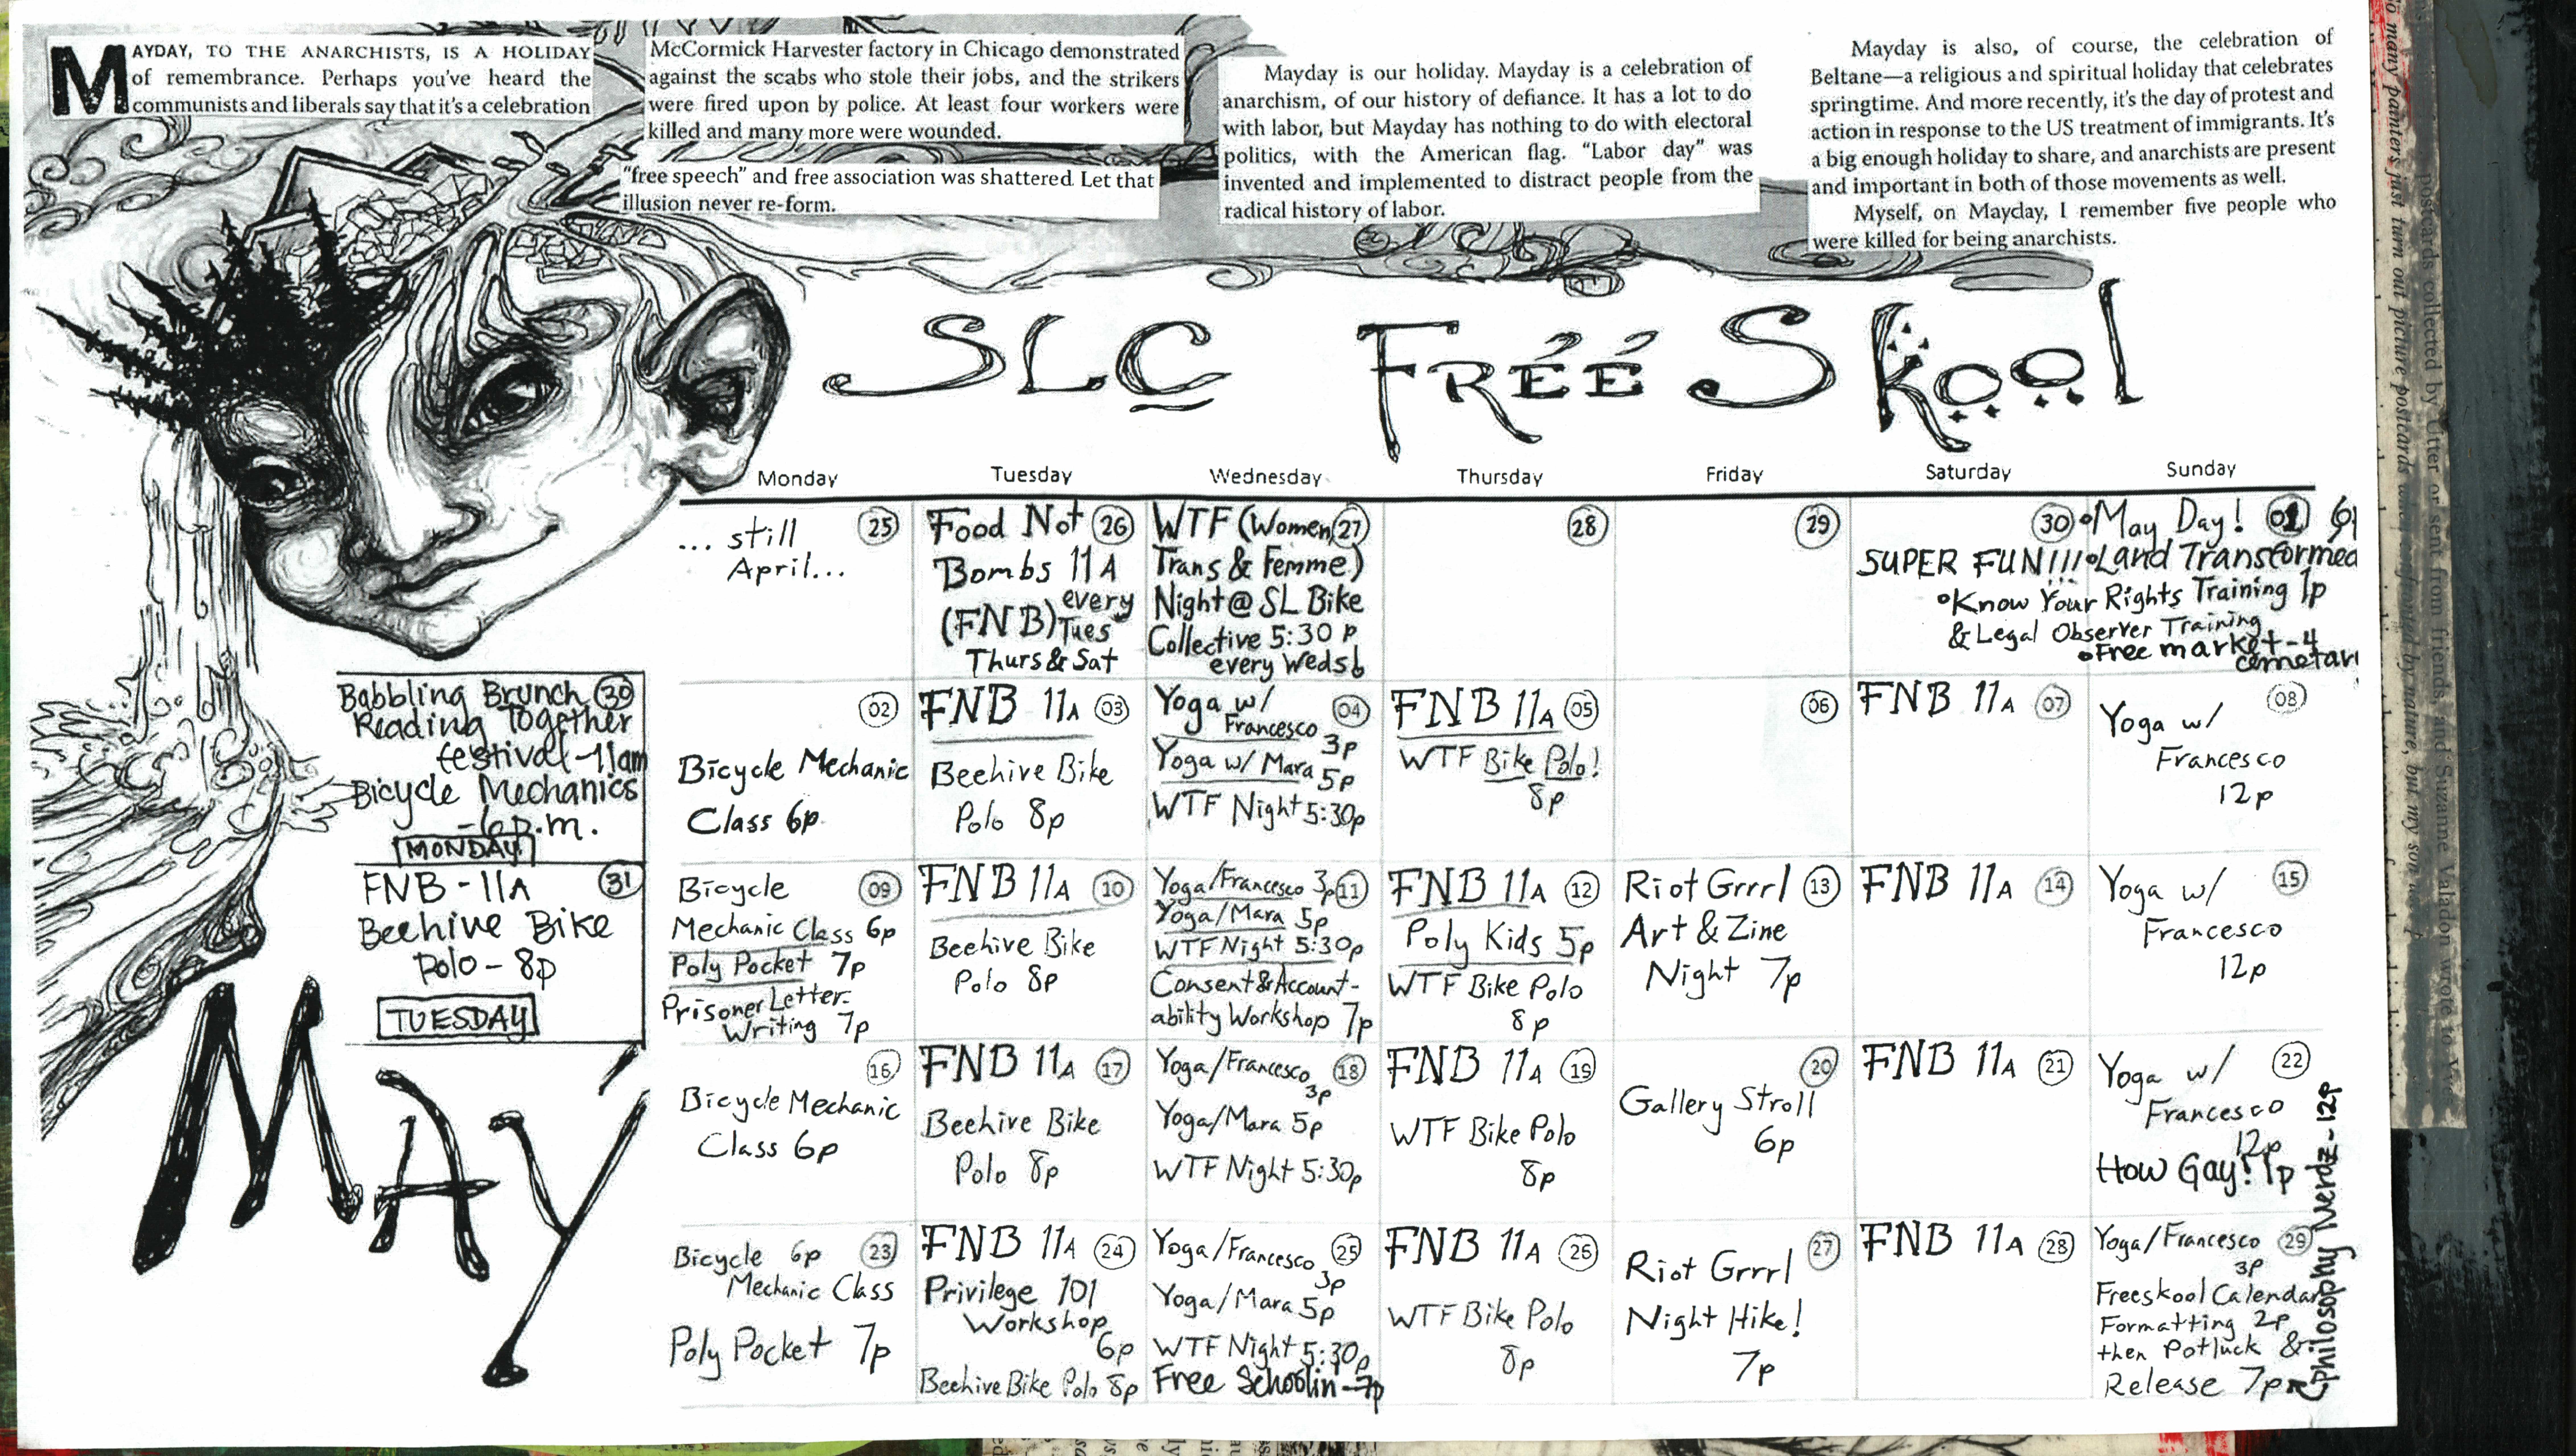 MAYDAY, TO THE ANARCHISTS, IS A HOLIDAY
of remembrance. Perhaps you've heard the
communists and liberals say that it's a celebration
McCormick Harvester factory in Chicago demonstrated
against the scabs who stole their jobs, and the strikers
were fired upon by police. At least four workers were
killed and many more were wounded.
"free speech" and free association was shattered. Let that
illusion never re-form.
Mayday is our holiday. Mayday is a celebration of
anarchism, of our history of defiance. It has a lot to do
with labor, but Mayday has nothing to do with electoral
politics, with the American flag. "Labor day" was
invented and implemented to distract people from the
radical history of labor.
Mayday is also, of course, the celebration of
Beltane—a religious and spiritual holiday that celebrates
springtime. And more recently, it's the day of protest and
action in response to the US treatment of immigrants. It's
a big enough holiday to share, and anarchists are present
and important in both of those movements as well.
Myself, on Mayday, I remember five people who
were killed for being anarchists.
SLC FRÉÉ SKOOL
Monday
Tuesday
Wednesday
Thursday
Friday
Saturday
Sunday
25
... still
April...
Food Not 26
Bombs 11A
every
(FNB) Tues
Thurs & Sat
WTF (Women, 27
Trans & Femme)
Night @ SL Bike
Collective 5:30 p
every Weds
28
29
30
SUPER FUN!!!
•Know Your Rights Training 1p
& Legal Observer Training
•May Day! 01
•Land Transformed
•Free market-4
cemetary
02
Bicycle Mechanic
Class 6p
FNB 11A 03
Beehive Bike
Polo 8p
Yoga w/ 04
Francesco
3p
Yoga w/ Mara 5p
WTF Night 5:30p
FNB 11A 05
WTF Bike Polo!
8p
06
FNB 11A 07
08
Yoga w/
Francesco
12p
Bicycle 09
Mechanic Class 6p
Poly Pocket 7p
Prisoner Letter-
Writing 7p
FNB 11A 10
Beehive Bike
Polo 8p
Yoga/Francesco 3p 11
Yoga/Mara 5p
WTF Night 5:30p
Consent & Account-
ability Workshop 7p
FNB 11A 12
Poly Kids 5p
WTF Bike Polo
8p
Riot Grrrl 13
Art & Zine
Night 7p
FNB 11A 14
Yoga w/ 15
Francesco
12p
16
Bicycle Mechanic
Class 6p
FNB 11A 17
Beehive Bike
Polo 8p
Yoga/Francesco 18
3p
Yoga/Mara 5p
WTF Night 5:30p
FNB 11A 19
WTF Bike Polo
8p
20
Gallery Stroll
6p
FNB 11A 21
Yoga w/ 22
Francesco
12p
How Gay! 1p
Bicycle 6p 23
Mechanic Class
Poly Pocket 7p
FNB 11A 24
Privilege 101
Workshop
6p
Beehive Bike Polo 8p
Yoga/Francesco 25
3p
Yoga/Mara 5p
WTF Night 5:30p
Free Schoolin-7p
FNB 11A 26
WTF Bike Polo
8p
27
Riot Grrrl
Night Hike!
7p
FNB 11A 28
Yoga/Francesco 29
3p
Freeskool Calendar
Formatting 2p
then Potluck &
Release 7p
Philosophy Nerdz-12p
Babbling Brunch 30
Reading Together
festival-11am
Bicycle Mechanics
-6p.m.
MONDAY
FNB-11A 31
Beehive Bike
Polo-8p
TUESDAY
MAY
so many painters just turn out picture postcards
postcards collected by Utter or sent from friends, and Suzanne Valadon wrote to
by nature, but my son